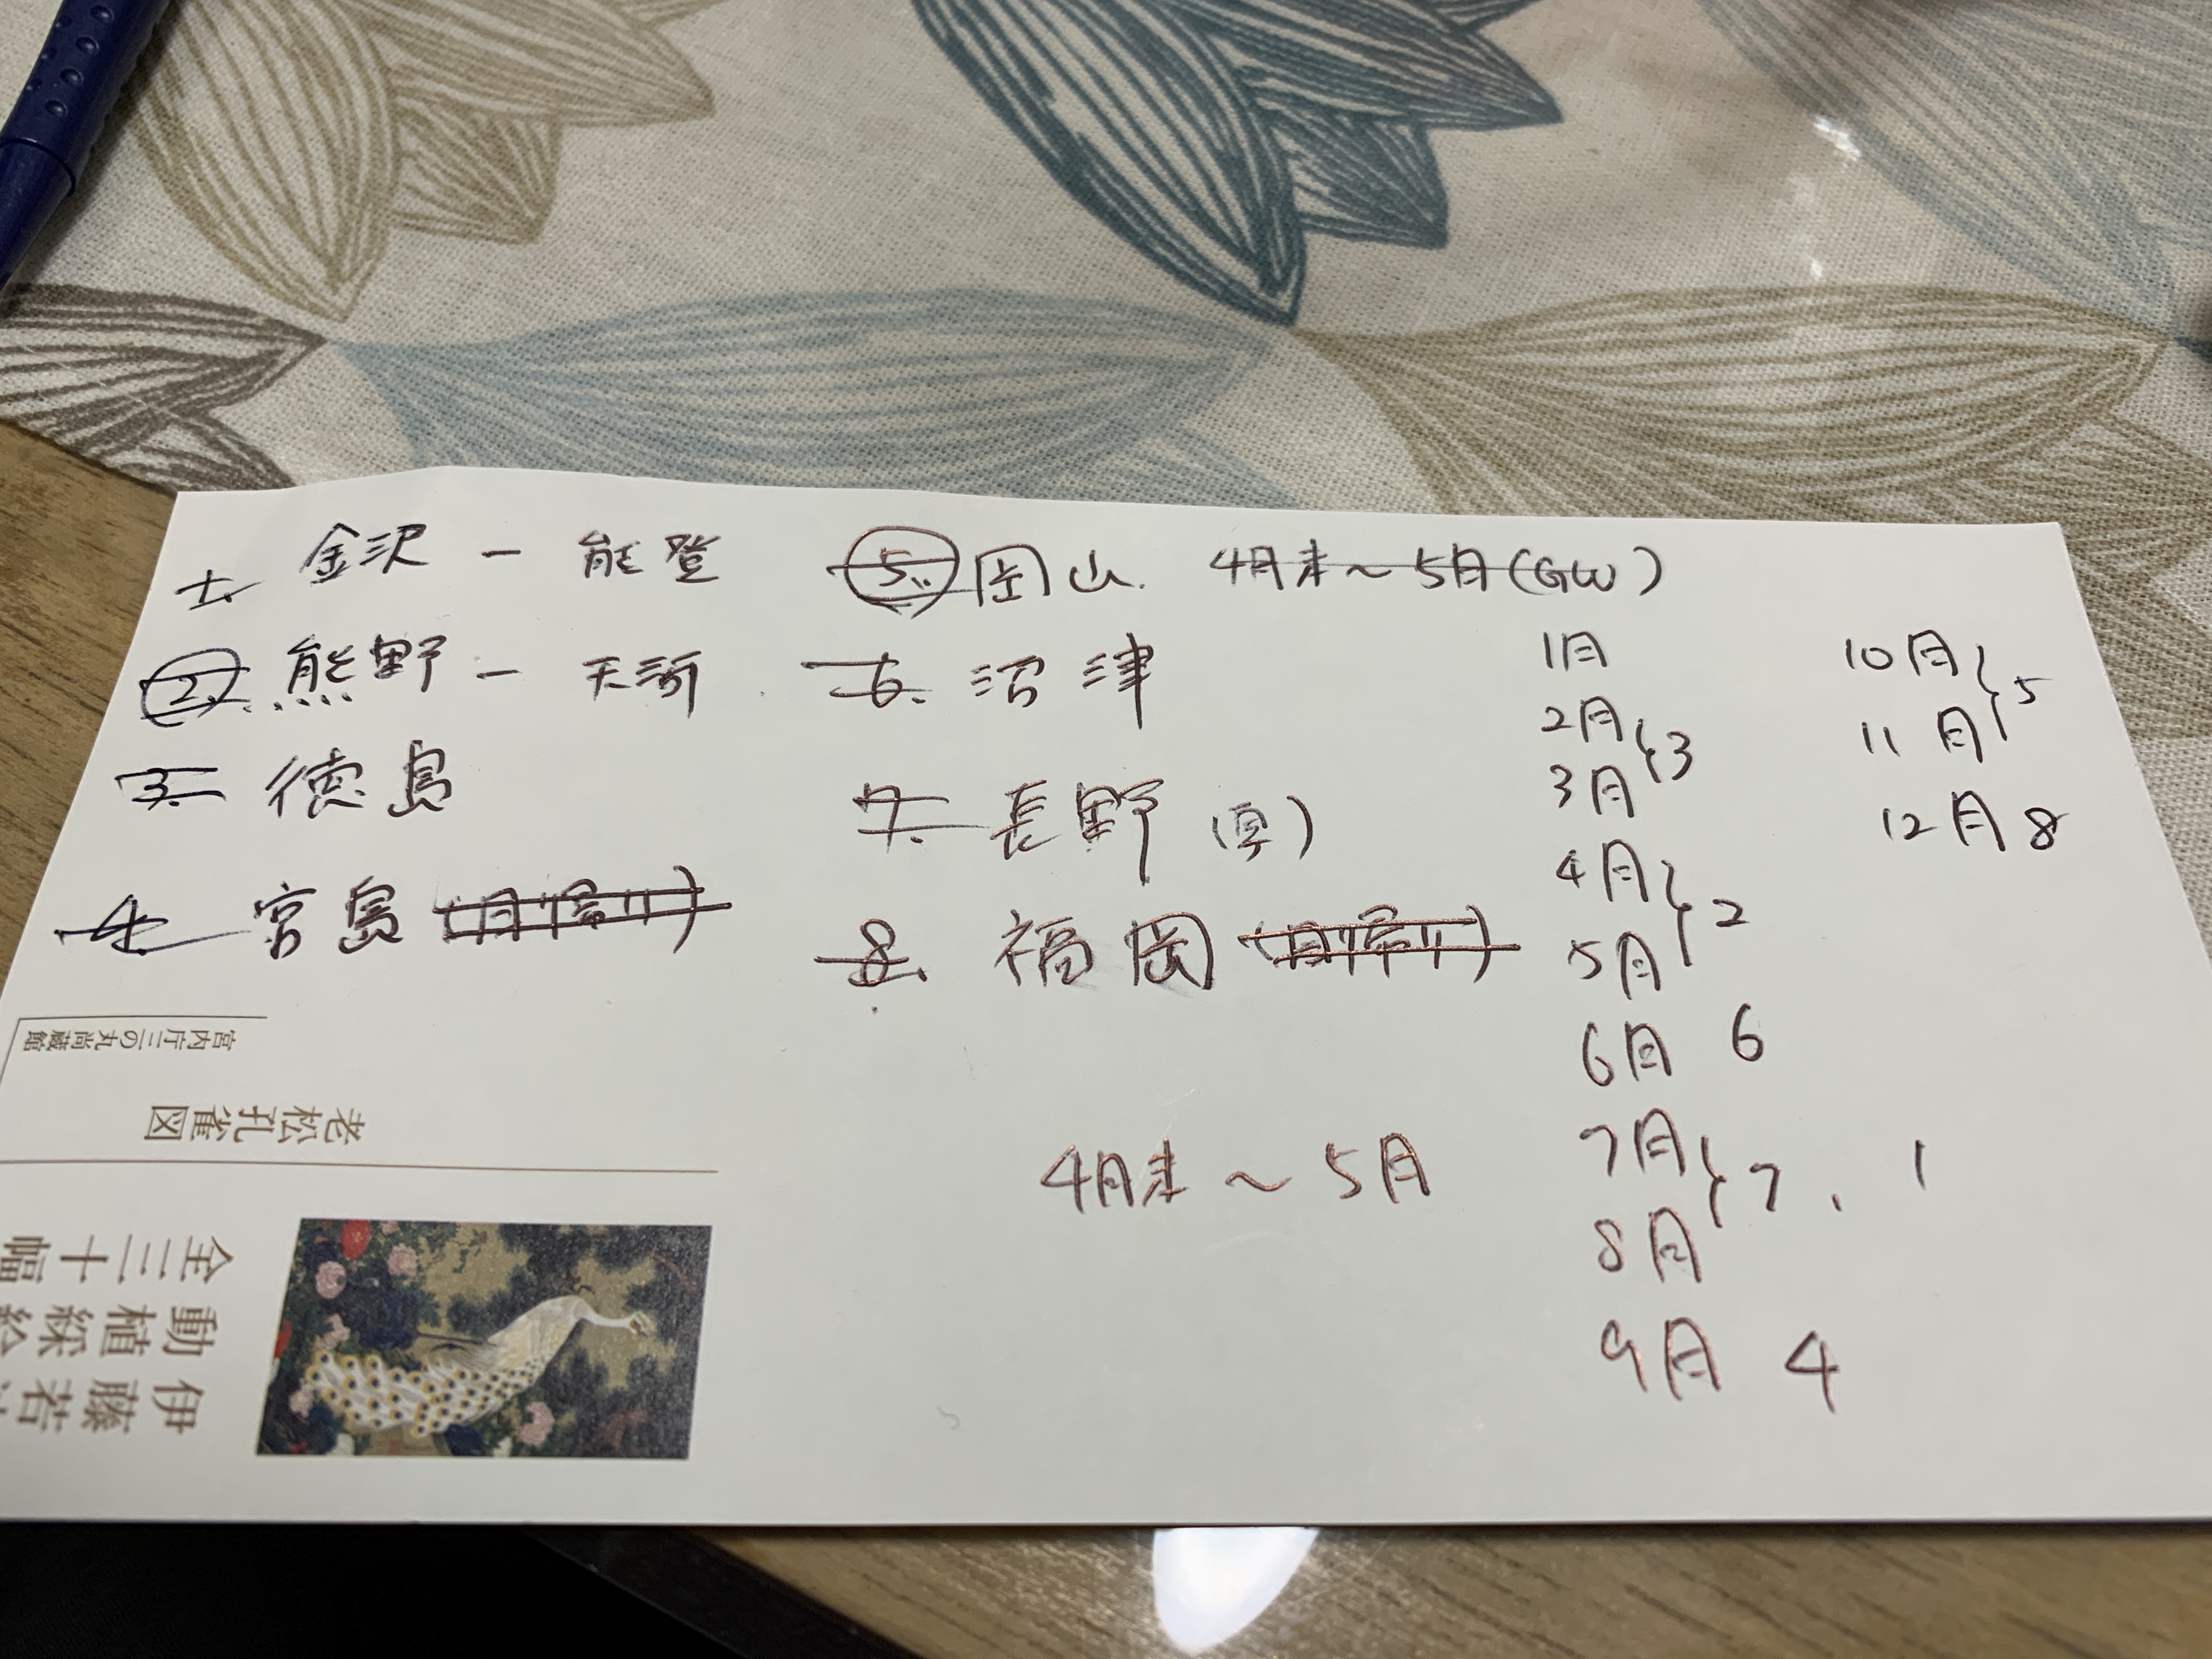 1. 金沢 － 能登
2. 熊野 － 天河
3. 徳島
4. 宮島 (日帰り)
5. 岡山. 4月末〜5月(GW)
6. 沼津
7. 長野 (車)
8. 福岡 (日帰り)
4月末 〜 5月
1月
2月
3月 } 3
4月
5月 } 2
6月 6
7月
8月 } 7、1
9月 4
10月
11月 } 5
12月 8
宮内庁三の丸尚蔵館
老松孔雀図
伊藤若
動植綵絵
全三十幅